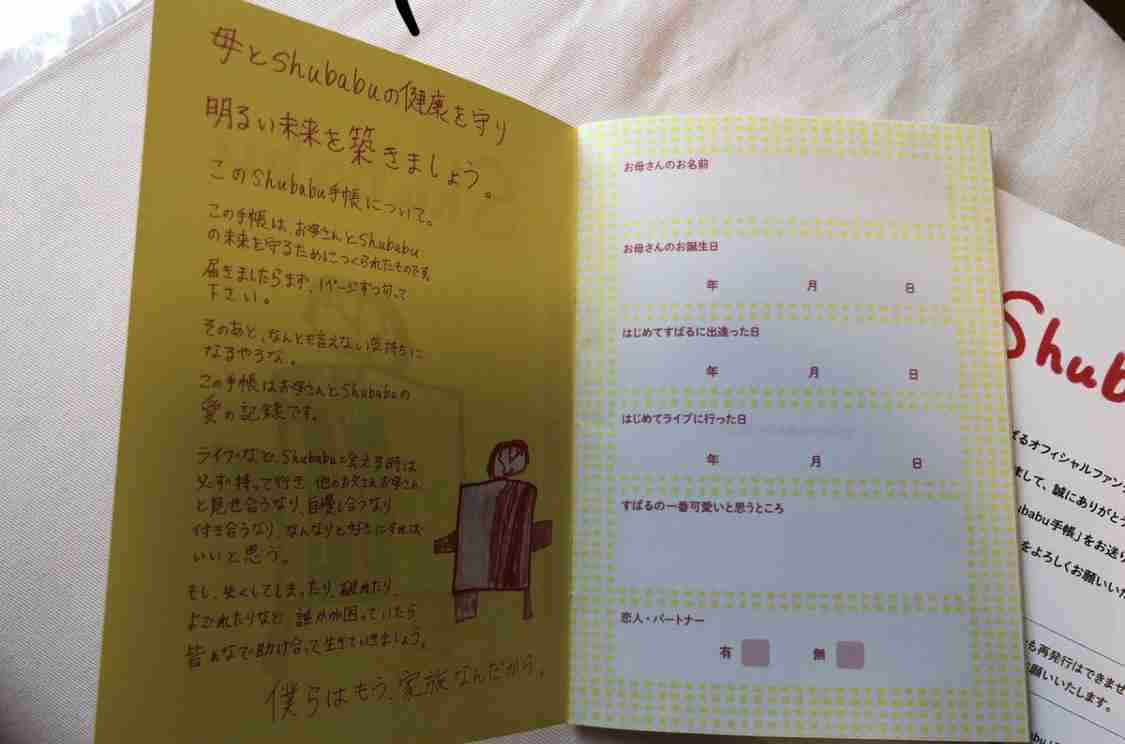 母とShubabuの健康を守り
明るい未来を築きましょう。
このShubabu手帳について。
この手帳は、お母さんとShubabu
の未来を守るためにつくられたものです。
届きましたらまず、1ページずつ切って
下さい。
そのあと、なんとも言えない気持ちに
なるやろな。
この手帳はお母さんとShubabuの
愛の記録です。
ライブなど、Shubabuに会える時は
必ず持って行き、他のお父さんお母さん
と見せ合うなり、自慢し合うなり
付き合うなり、なんなりと好きにすれば
いいと思う。
もし、失くしてしまったり、破れたり、
よごれたりなど、誰かが困っていたら
皆んなで助け合って生きていきましょう。
僕らはもう、家族なんだから。
お母さんのお名前
お母さんのお誕生日
年 月 日
はじめてすばるに出逢った日
年 月 日
はじめてライブに行った日
年 月 日
すばるの一番可愛いと思うところ
恋人・パートナー
有 無
Shub
ばるオフィシャルファン
まして、誠にありがとう
abu手帳」をお送り
をよろしくお願いいた
も再発行はできませ
願いいたします。